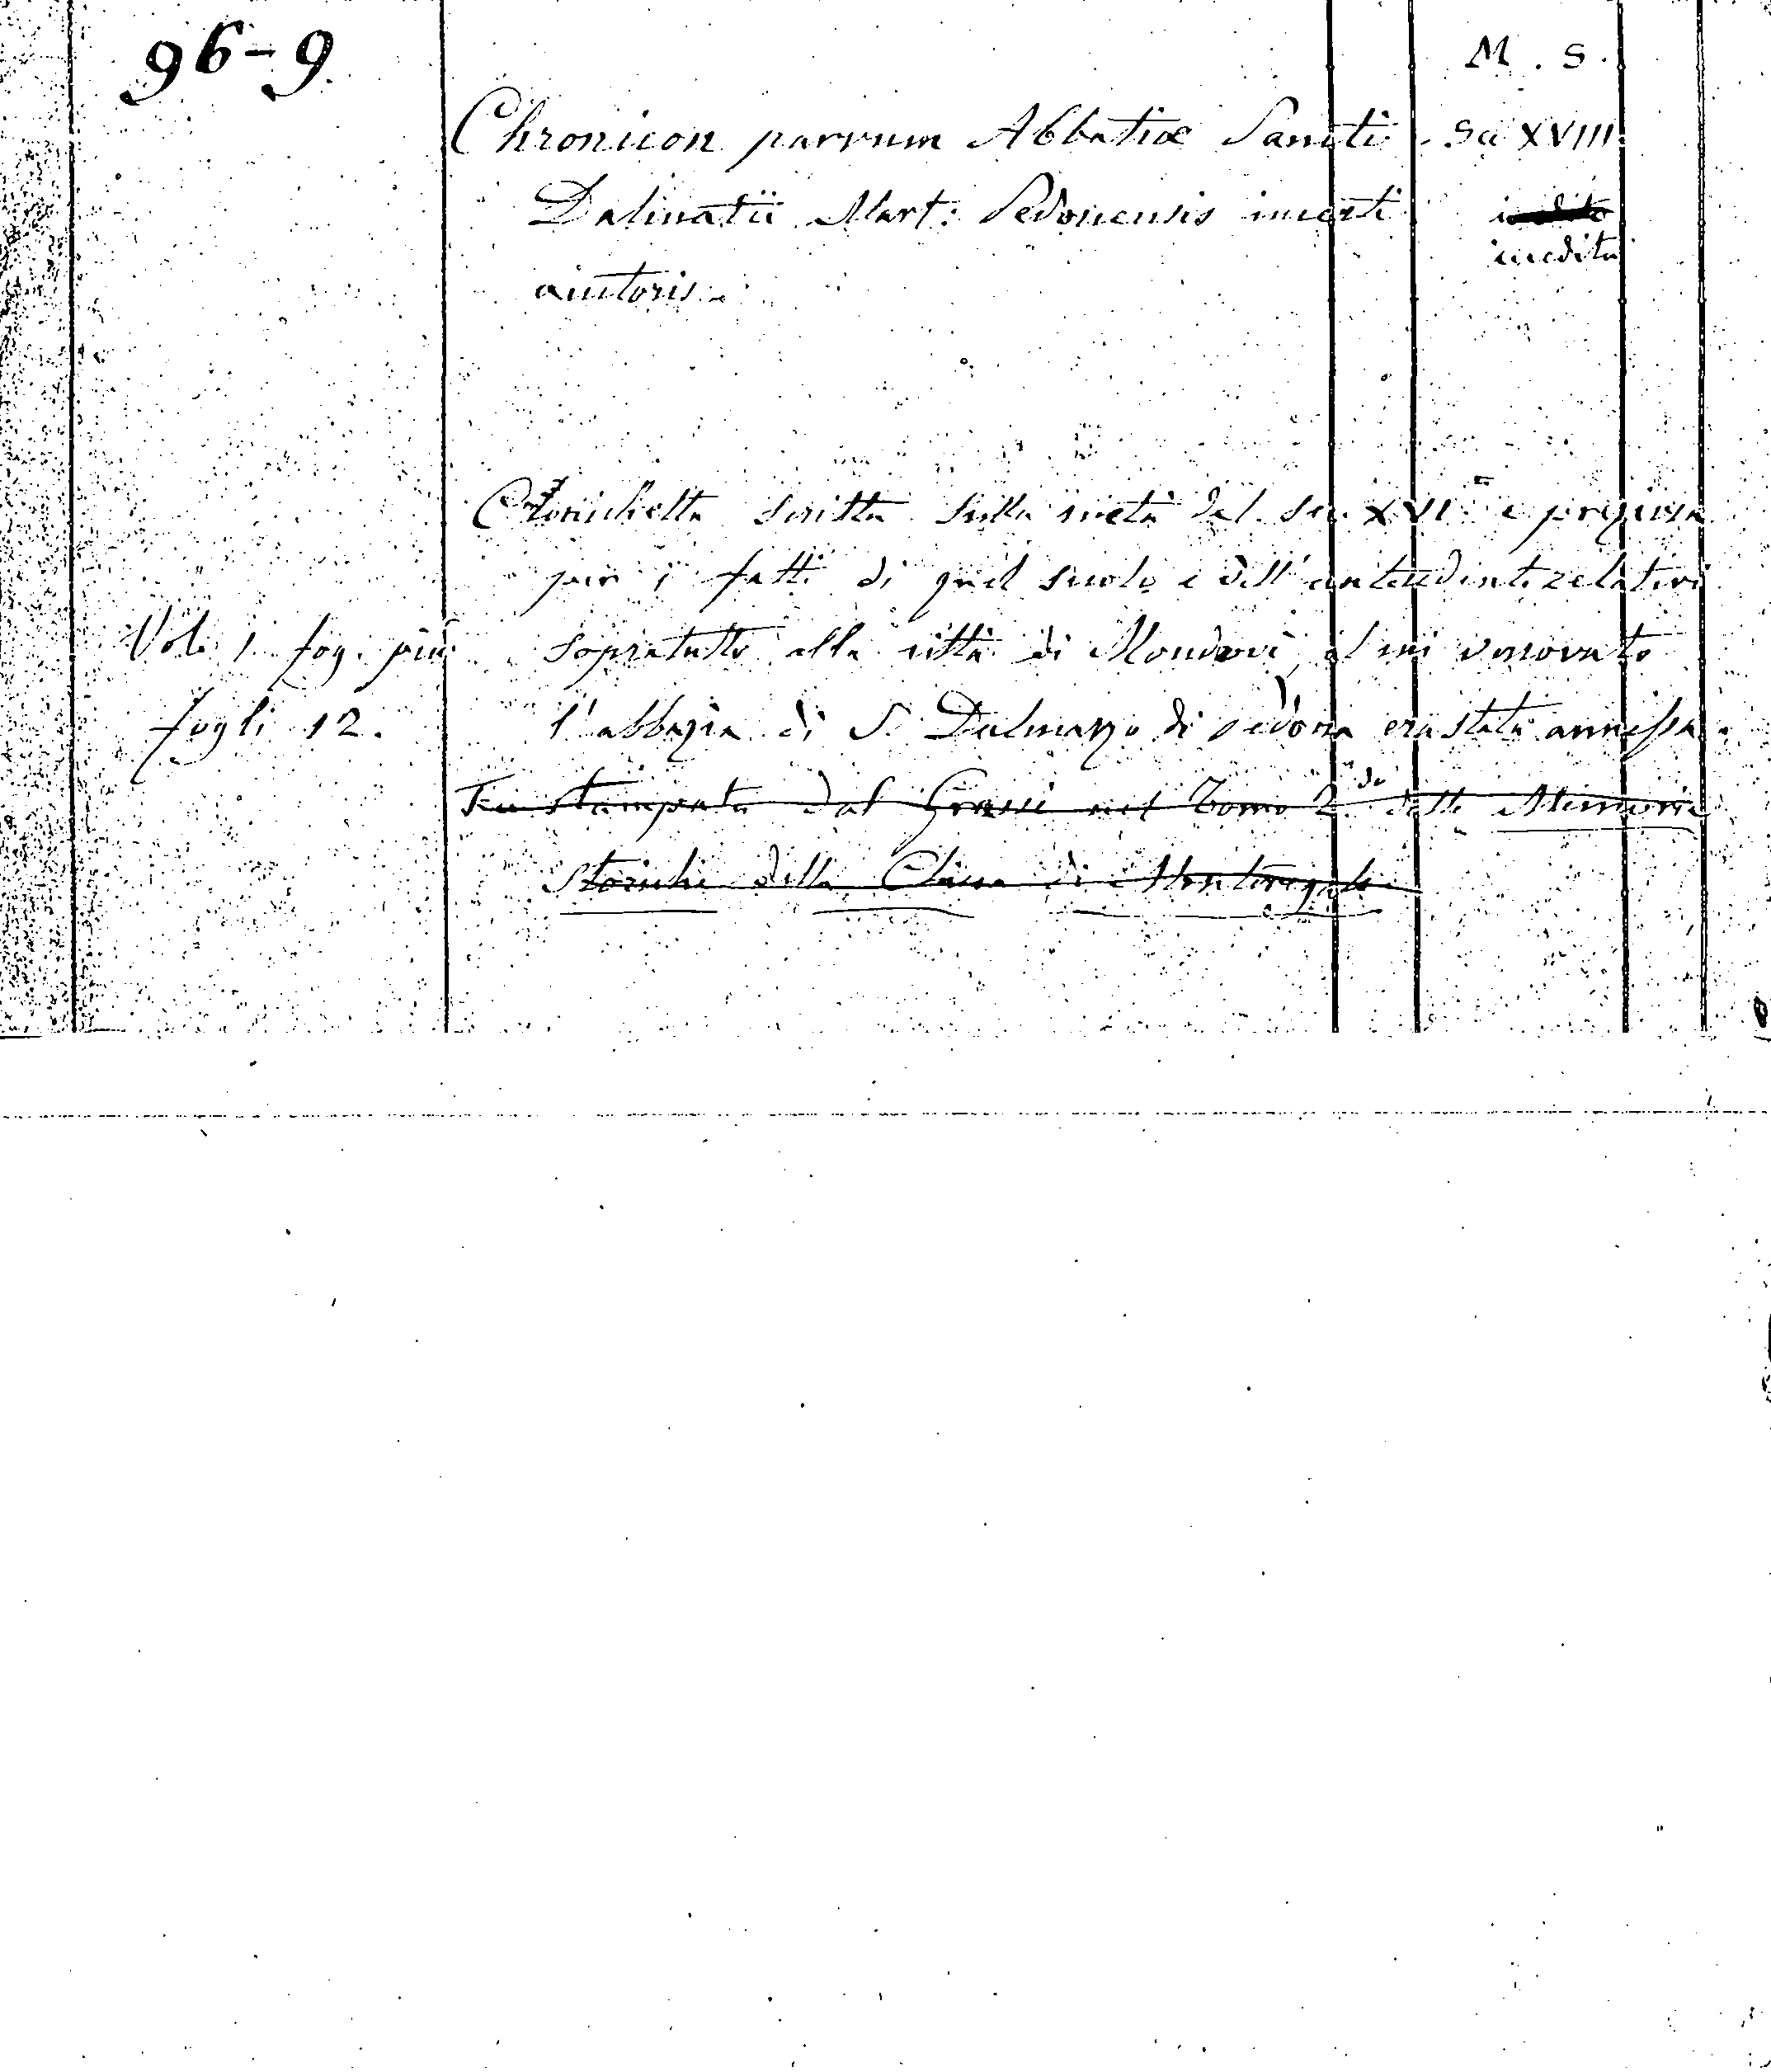 96-9
M. S.
Chronicon parvum Abbatiæ Sancti
Sec XVIII.
Dalmatii Mart: Pedonensis incerti
inedito
inedita
auctoris.
Cronichetta scritta sulla metà del sec. XVI e preziosa
per i fatti di quel secolo e dell'antecedente relativi
Vol. 1. fog. picc.
sopratutto alla città di Mondovì, al cui vescovato
fogli 12.
l'abbazia di S. Dalmazzo di Pedona era stata annessa.
Fu stampata dal Grassi nel Tomo 2.do delle Memorie
Storiche della Chiesa di Monteregale